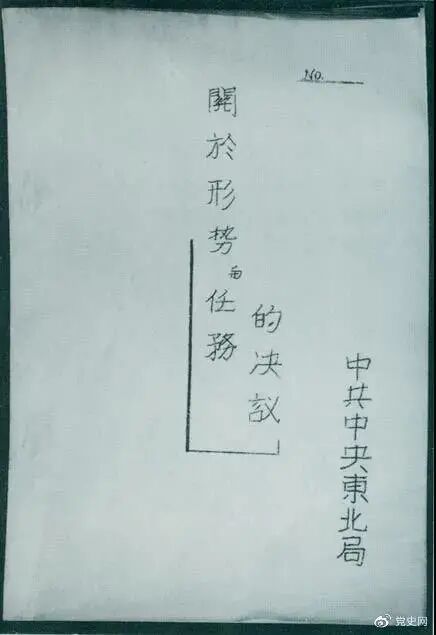 NO.
關於形势和任務
的决议
中共中央東北局
党史网